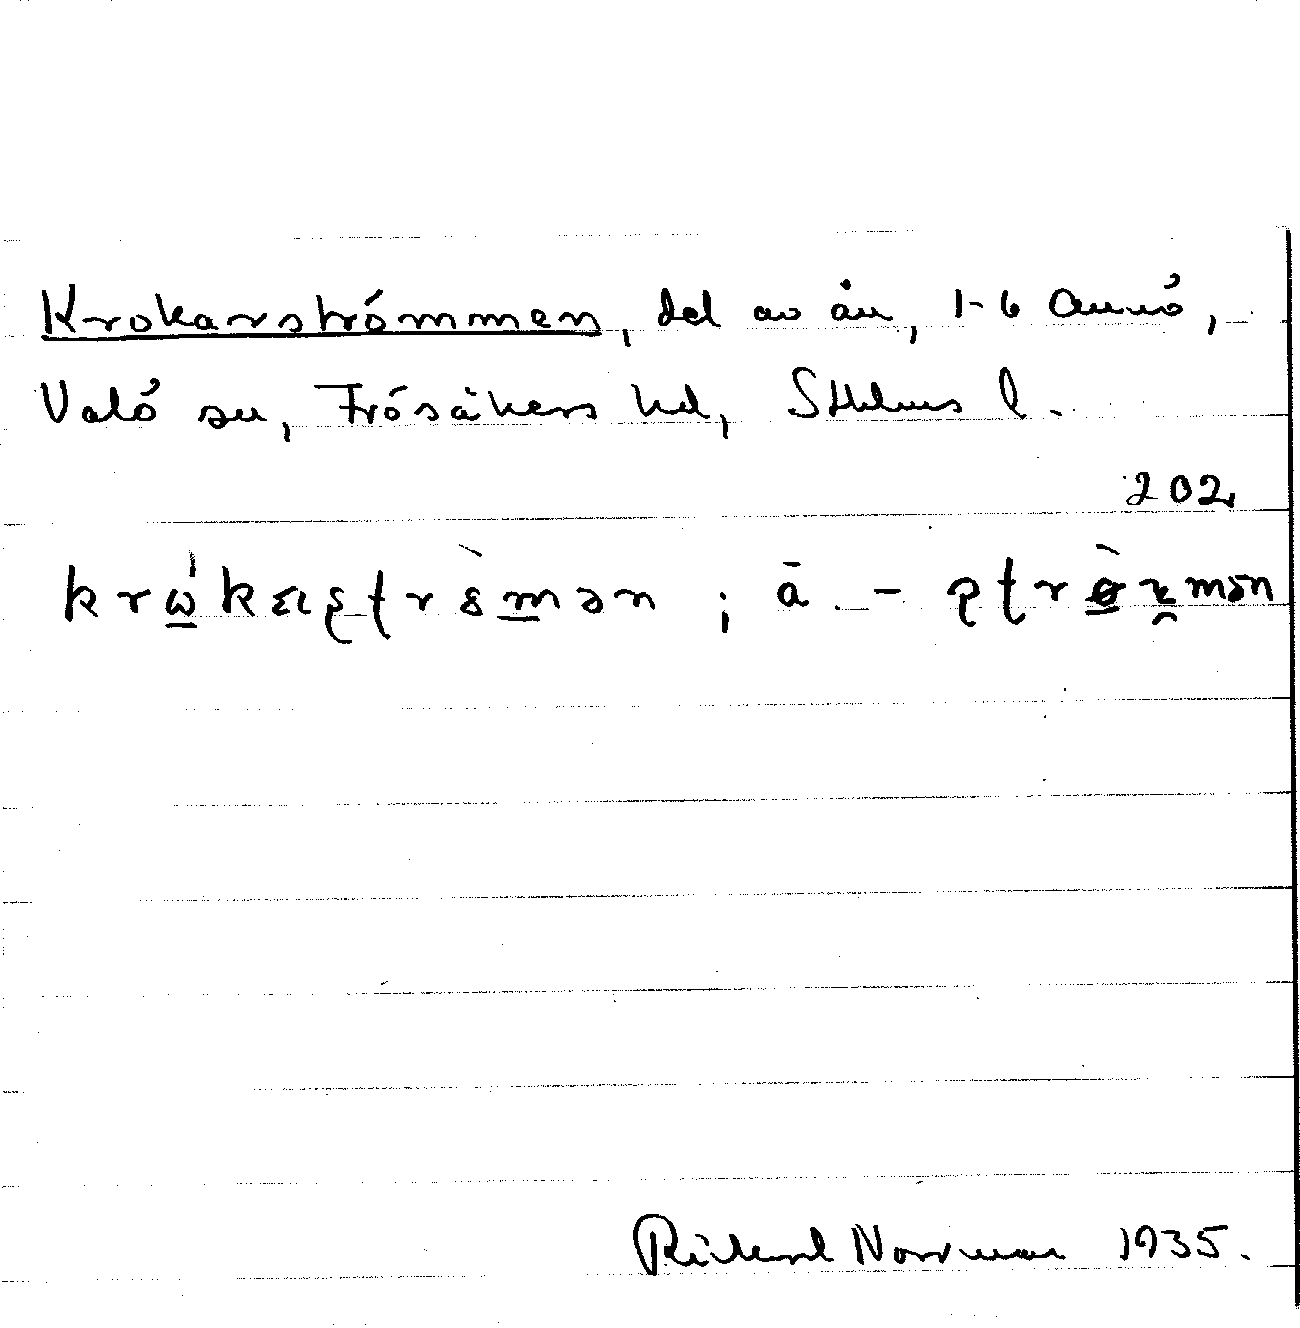 Krokarströmmen, del av ån, 1-6 Annö,
Valö sn, Frösåkers hd, Sthlms l.
202
krὼ̲kaʂtrè̲mən ; ā - ʂtrø̲̀mən
Rickard Norrman 1935.